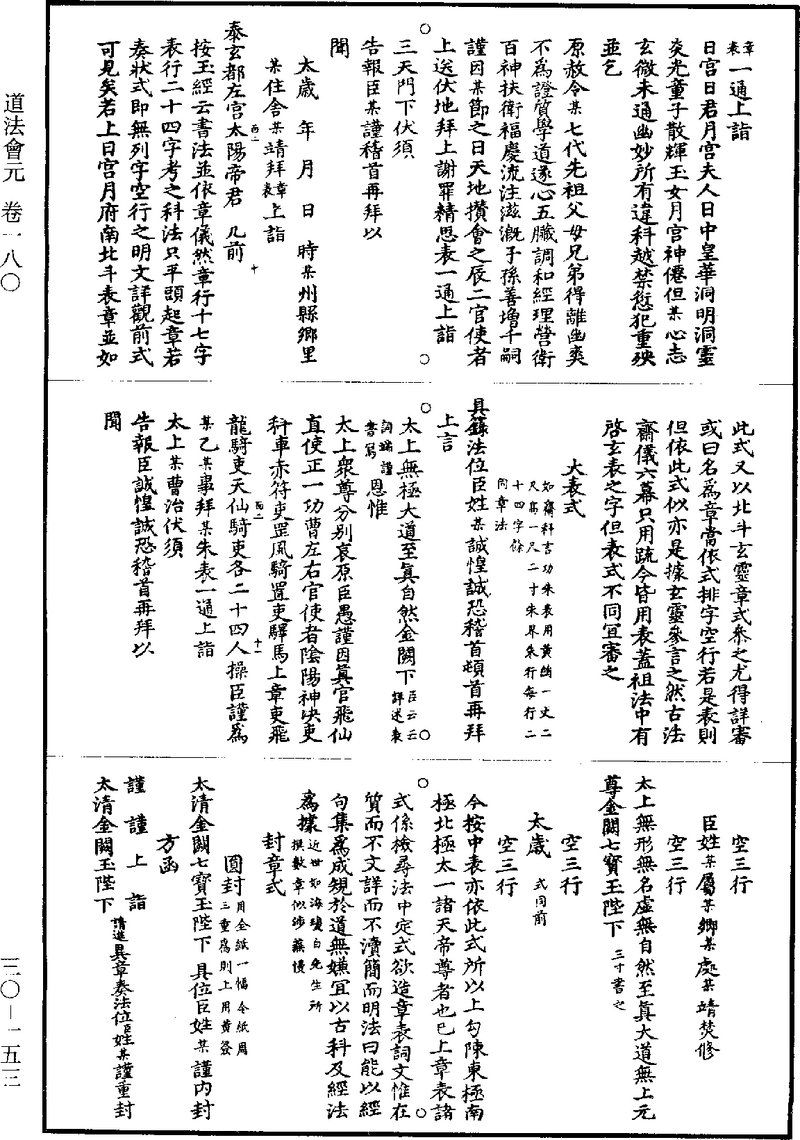 道法會元　卷一八〇
三〇—一五三
章表一通上詣
日宮日君月宮夫人日中皇華洞明洞靈
炎光童子散輝玉女月宮神僊但某心志
玄微未通幽妙所有違科越禁愆犯重殃
並乞
原赦令某七代先祖父母兄弟得離幽爽
不為證質學道遂心五臟調和經理營衛
百神扶衛福慶流注滋漑子孫善增千嗣
謹因某節之日天地攢會之辰二官使者
上送伏地拜上謝罪精思表一通上詣
三天門下伏須
告報臣某謹稽首再拜以
聞
太歲　年　月　日　時某州縣鄉里
某住舍某靖拜章表上詣
泰玄都左宮太陽帝君　几前
按玉經云書法並依章儀然章行十七字
表行二十四字考之科法只平頭起章若
奏狀式即無列字空行之明文詳觀前式
可見矣若上日宮月府南北斗表章並如
此式又以北斗玄靈章式參之尤得詳審
或曰名為章當依式排字空行若是表則
但依此式似亦是據玄靈參言之然古法
齋儀六幕只用䟽今皆用表蓋祖法中有
啓玄表之字但表式不同宜審之
大表式
如齋科言功朱表用黃紬一丈二
尺高一尺二寸朱界朱行每行二
十四字餘
同章法
具籙法位臣姓某誠惶誠恐稽首頓首再拜
上言
太上無極大道至真自然金闕下臣云云詳述衷
詞端謹書寫恩惟
太上衆尊分别哀原臣愚謹因真官飛仙
直使正一功曹左右官使者陰陽神决吏
科車赤符吏罡風騎置吏驛馬上章吏飛
龍騎吏天仙騎吏各二十四人操臣謹為
某乙某事拜某朱表一通上詣
太上某曹治伏須
告報臣誠惶誠恐稽首再拜以
聞
空三行
臣姓某屬某鄉某處某靖焚修
空三行
太上無形無名虛無自然至真大道無上元
尊金闕七寶玉陛下三寸書之
空三行
太歲　式同前
空三行
今按中表亦依此式所以上勾陳東極南
極北極太一諸天帝尊者也已上章表諸
式係檢尋法中定式欲造章表詞文惟在
質而不文詳而不瀆簡而明法曰能以經
句集為成規於道無嫌宜以古科及經法
為據近世如海瓊白先生所撰數章似涉蕪慢
封章式
圓封用全紙一幅令紙周三重為則上用黃簽
太清金闕七寶玉陛下　具位臣姓某謹内封
方函
謹　謹　上　詣
太清金闕玉陛下　請進具章奏法位臣姓某謹重封